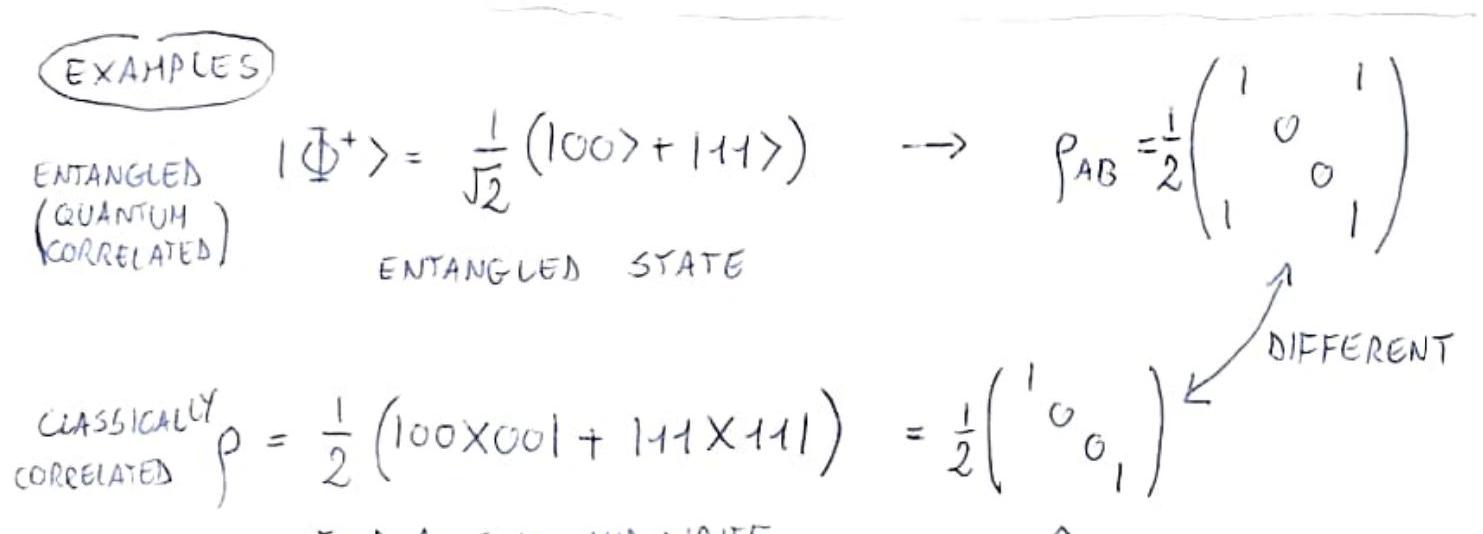 EXAMPLES
ENTANGLED
(QUANTUM
CORRELATED)
|Φ⁺> = 1/√2 (|00> + |11>) → ρAB = 1/2 ( 1 1
0
0
1 1 )
ENTANGLED STATE
DIFFERENT
CLASSICALLY
CORRELATED
ρ = 1/2 (|00X00| + |11X11|) = 1/2 ( 1
0
0
1 )